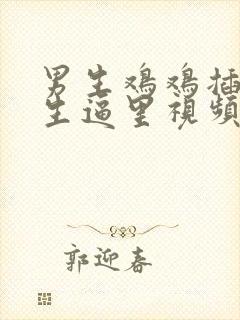 男生鸡鸡插
生逼里視頻
郭迎春